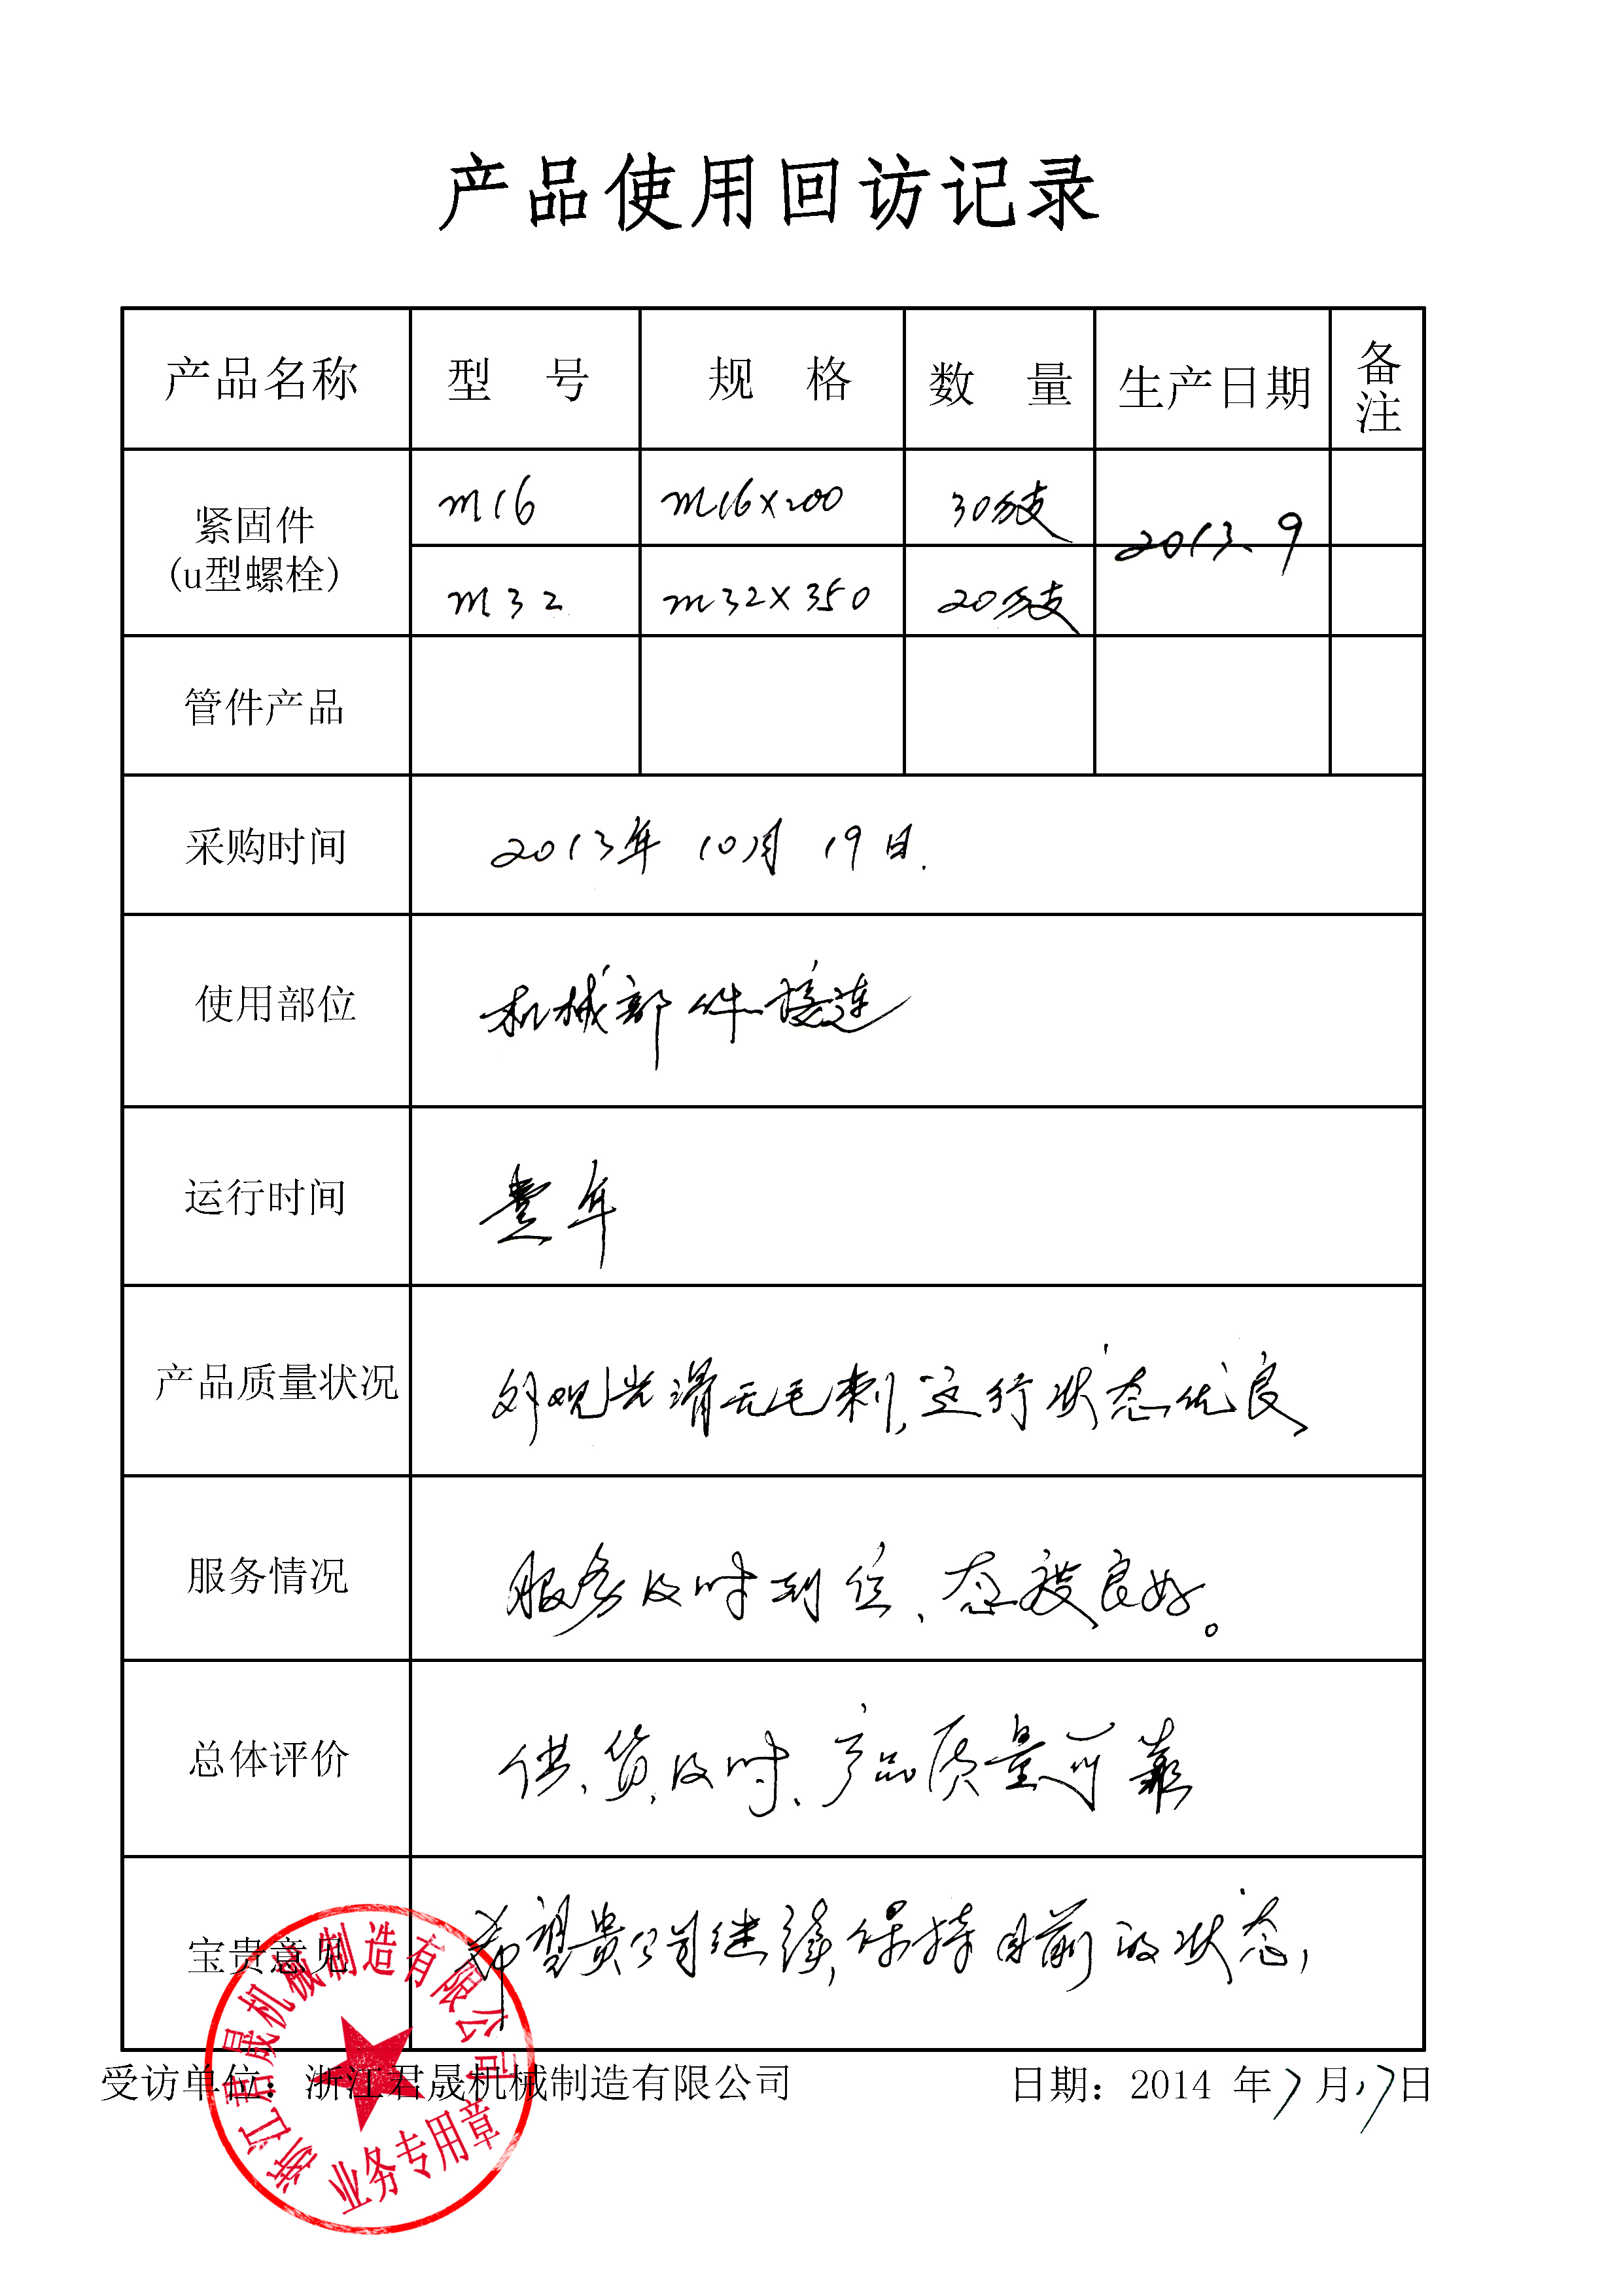 产品使用回访记录
产品名称 型 号 规 格 数 量 生产日期 备注
紧固件
(u型螺栓)
M16 M16×200 30万支 2013.9
M32 M32×350 20万支
管件产品
采购时间 2013年 10月 19日.
使用部位 机械部件接连
运行时间 整年
产品质量状况 外观光滑无毛刺,运行状态优良
服务情况 服务及时到位、态度良好。
总体评价 供货及时、产品质量可靠
宝贵意见 希望贵公司继续保持目前的状态,
受访单位: 浙江君晟机械制造有限公司 日期: 2014 年 7 月 17 日
浙江君晟机械制造有限公司
业务专用章